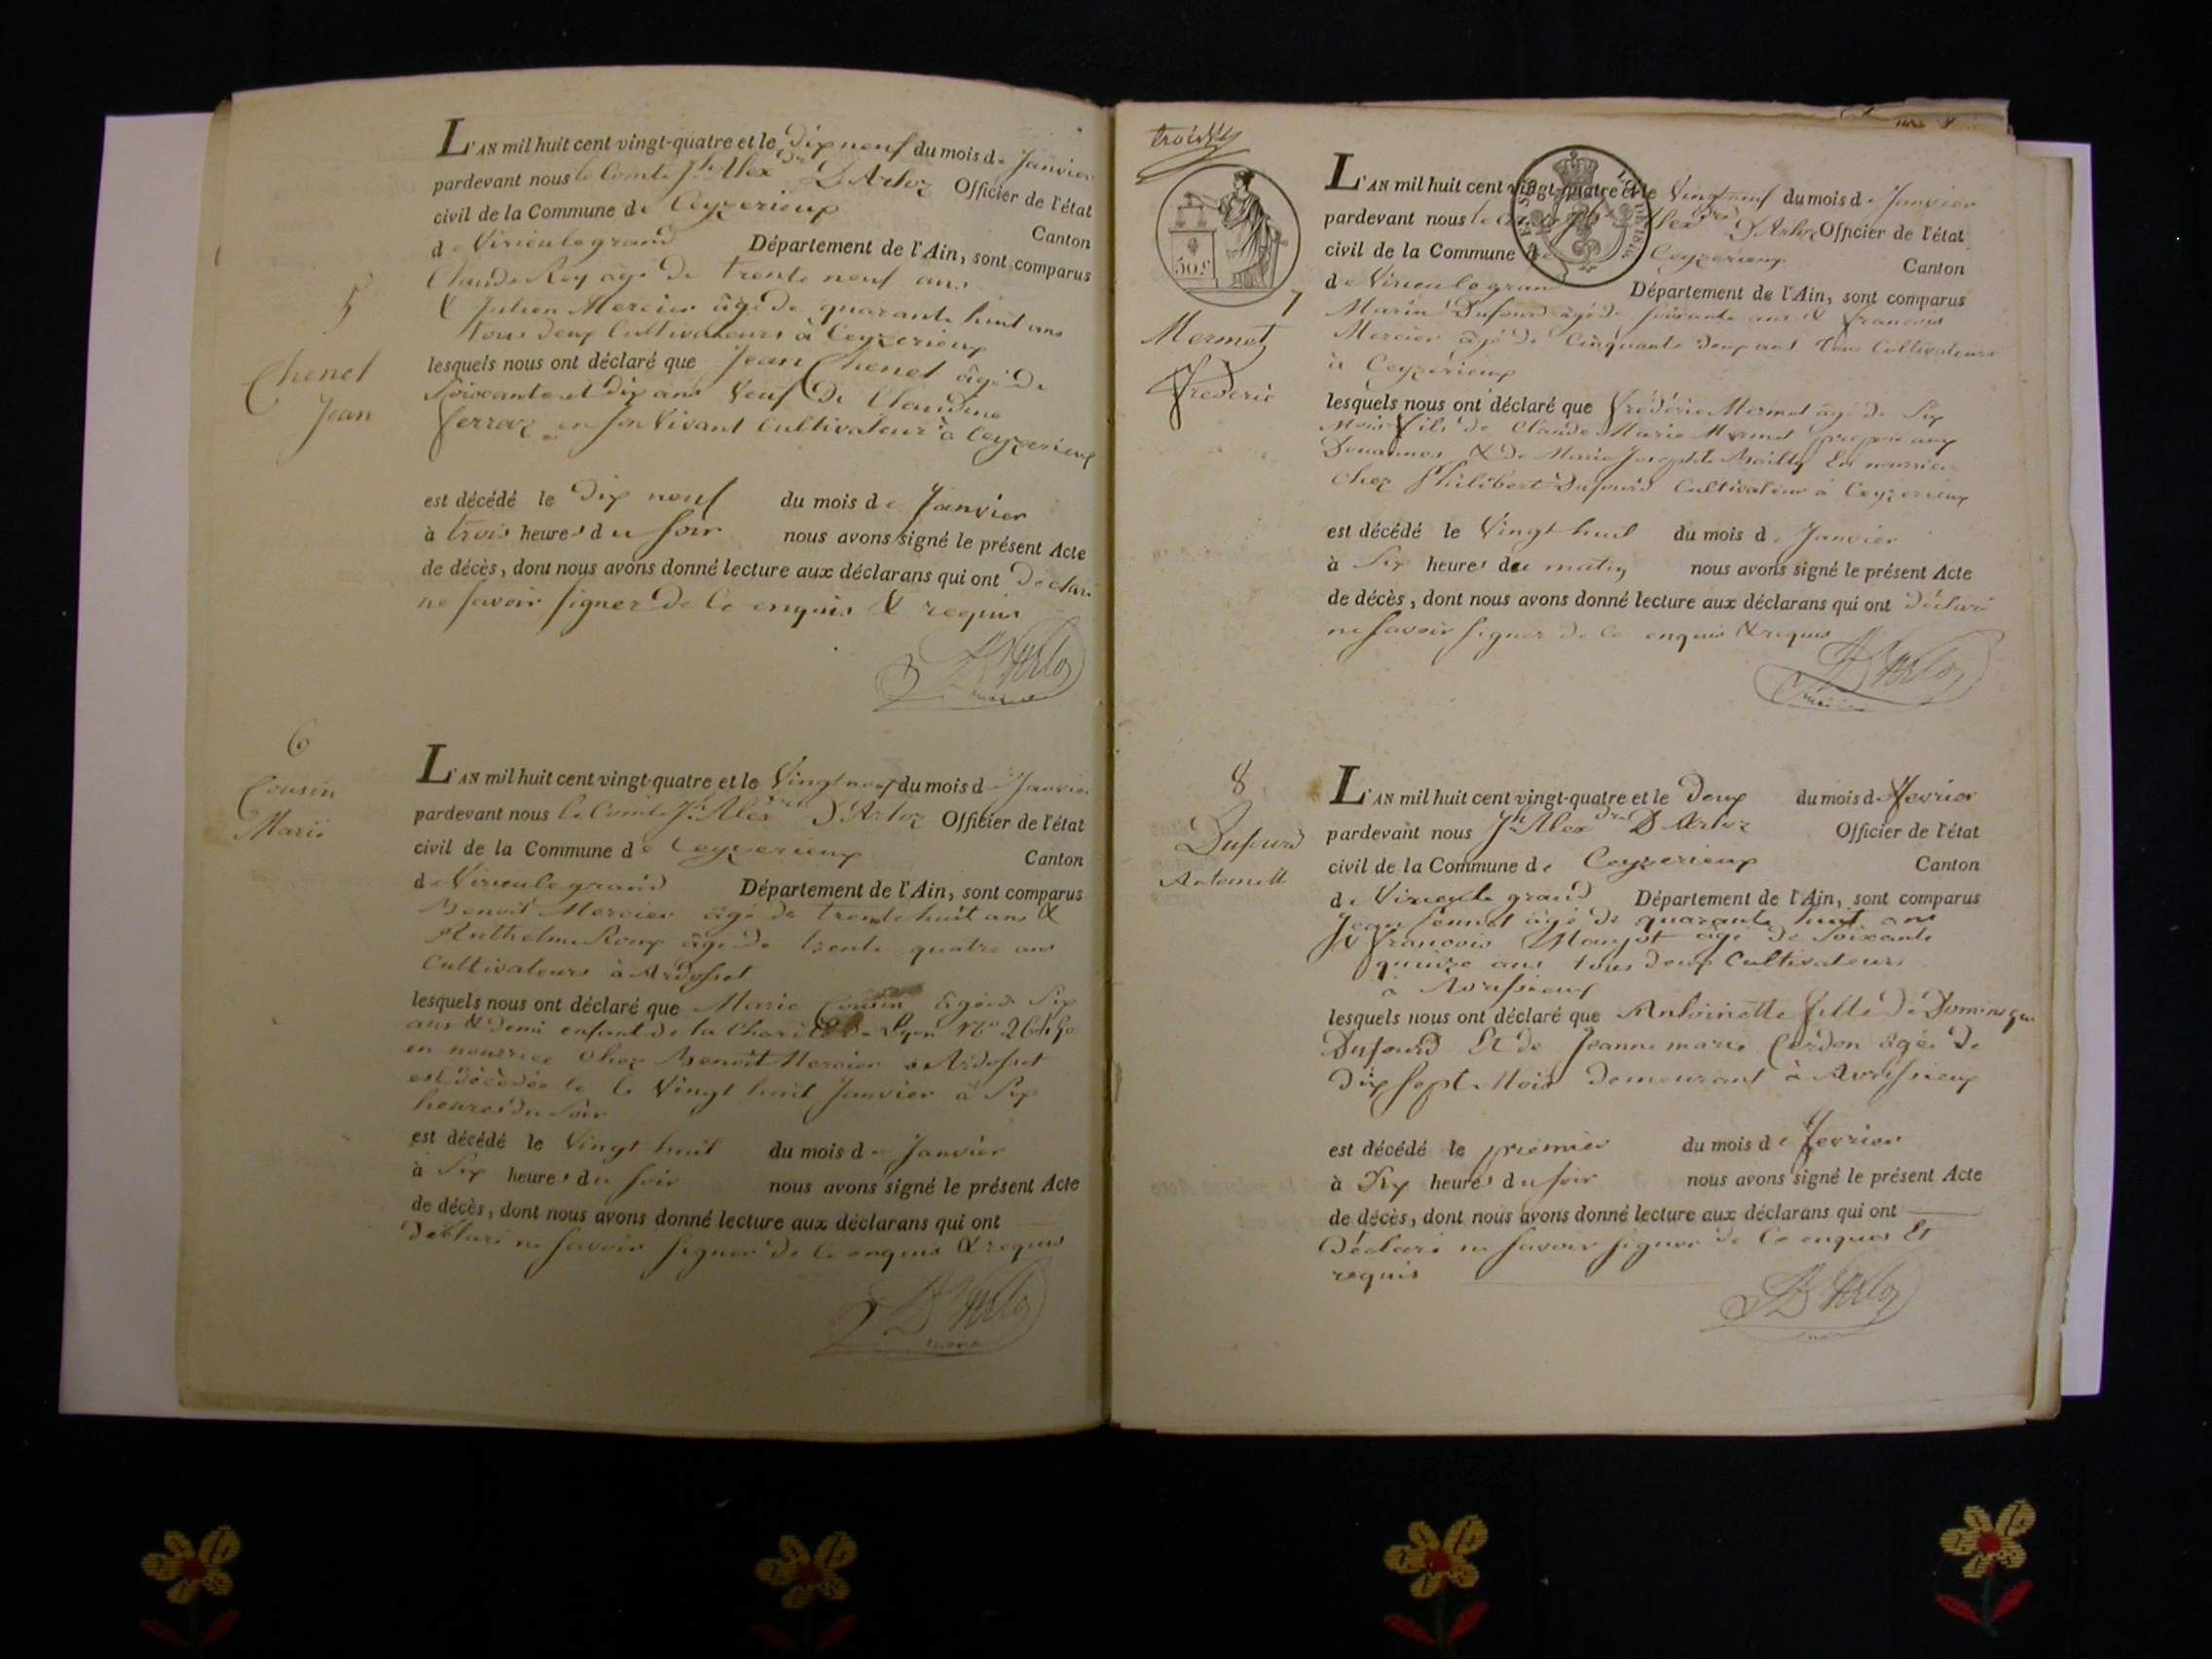 L'AN mil huit cent vingt-quatre et le Dix neuf du mois de Janvier
pardevant nous le Comte Jh Alexdre D'Arloz Officier de l'état
civil de la Commune de Ceyzerieux Canton
de Virieulegrand Département de l'Ain, sont comparus
Claude Rey âgé de trente neuf ans
& Julien Mercier âgé de quarante huit ans
tous deux Cultivateurs à Ceyzerieux
5
Chenel
Jean
lesquels nous ont déclaré que Jean Chenel âgé de
Soixante et dix ans Veuf de Claudine
ferraz en son Vivant Cultivateur à Ceyzerieux
est décédé le Dix neuf du mois de Janvier
à trois heures du soir nous avons signé le présent Acte
de décès, dont nous avons donné lecture aux déclarans qui ont Déclaré
ne savoir signer de ce enquis & requis
D'Arloz
6
Cousin
Marie
L'AN mil huit cent vingt-quatre et le Vingt neuf du mois de Janvier
pardevant nous le Comte Jh Alexdre D'Arloz Officier de l'état
civil de la Commune de Ceyzerieux Canton
de Virieulegrand Département de l'Ain, sont comparus
Benoit Mercier âgé de trente huit ans &
Anthelme Roux âgé de trente quatre ans
Cultivateurs à Ardosset
lesquels nous ont déclaré que Marie Cousin âgée de Six
ans & demi enfant de la Charité de Lyon
en nourrice chez Benoit Mercier à Ardosset
est décédée le Vingt huit Janvier à Six
heures du Soir
est décédé le Vingt huit du mois de Janvier
à Six heures du soir nous avons signé le présent Acte
de décès, dont nous avons donné lecture aux déclarans qui ont
Déclaré ne savoir signer de ce enquis & requis
D'Arloz
50 c
7
Mermet
frederic
L'AN mil huit cent vingt-quatre et le Vingt neuf du mois de Janvier
pardevant nous le D'Arloz Officier de l'état
civil de la Commune de Ceyzerieux Canton
de Virieulegrand Département de l'Ain, sont comparus
Marin Dufourd âgé de soixante ans & francois
Mercier âgé de Cinquante deux ans tous Cultivateurs
à Ceyzerieux
lesquels nous ont déclaré que frédéric Mermet âgé de Six
Mois fils de Claude Marie Mermet préposé aux
Douannes & de Marie Josephte Bailly En nourrice
chez Philibert Dufourd Cultivateur à Ceyzerieux
est décédé le Vingt huit du mois de Janvier
à Six heures du matin nous avons signé le présent Acte
de décès, dont nous avons donné lecture aux déclarans qui ont déclaré
ne savoir signer de ce enquis & requis
D'Arloz
8
Dufourd
Antoinette
L'AN mil huit cent vingt-quatre et le Deux du mois de fevrier
pardevant nous Jh Alexdre D'Arloz Officier de l'état
civil de la Commune de Ceyzerieux Canton
de Virieule grand Département de l'Ain, sont comparus
Jean âgé de quarante huit ans
& francois âgé de Soixante
quinze ans tous deux Cultivateurs
à Avrissieux
lesquels nous ont déclaré que Antoinette fille de Dominique
Dufourd Et de Jeanne marie Cerdon âgée de
dix sept Mois demeurant à Avrissieux
est décédé le premier du mois de fevrier
à Six heures du soir nous avons signé le présent Acte
de décès, dont nous avons donné lecture aux déclarans qui ont
Déclaré ne savoir signer de ce enquis Et
requis
D'Arloz